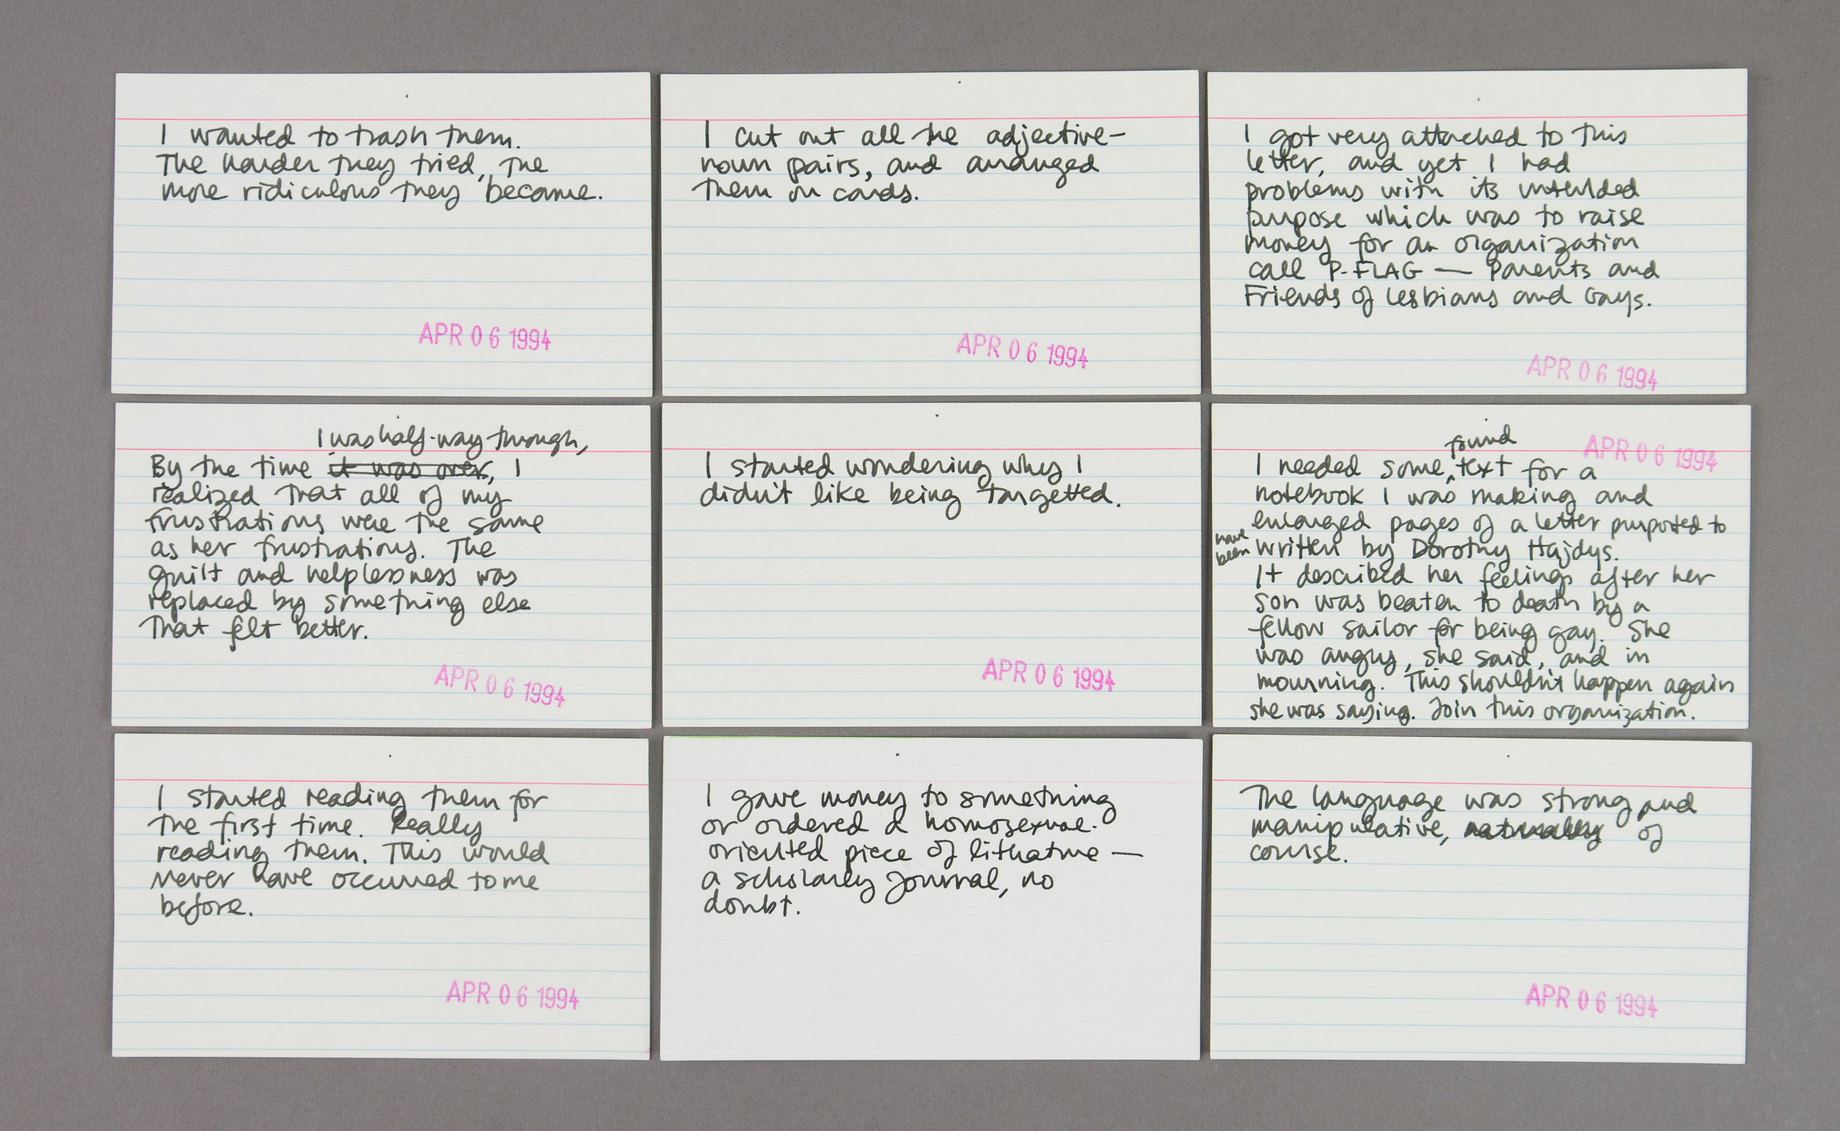 I wanted to trash them.
The harder they tried, the
more ridiculous they became.
APR 06 1994
I cut out all the adjective-
noun pairs, and arranged
them on cards.
APR 06 1994
I got very attached to this
letter, and yet I had
problems with its intended
purpose which was to raise
money for an organization
call P-FLAG — Parents and
Friends of Lesbians and Gays.
APR 06 1994
I was half-way through,
By the time it was over, I
realized that all of my
frustrations were the same
as her frustrations. The
guilt and helplessness was
replaced by something else
that felt better.
APR 06 1994
I started wondering why I
didn't like being targetted.
APR 06 1994
found
APR 06 1994
I needed some text for a
notebook I was making and
enlarged pages of a letter purported to
have
been written by Dorothy Hajdys.
It described her feelings after her
son was beaten to death by a
fellow sailor for being gay. She
was angry, she said, and in
mourning. This shouldn't happen again
she was saying. Join this organization.
I started reading them for
the first time. Really
reading them. This would
never have occurred to me
before.
APR 06 1994
I gave money to something
or ordered a homosexual-
oriented piece of lithature —
a scholarly journal, no
doubt.
The language was strong and
manipulative, naturally of
course.
APR 06 1994